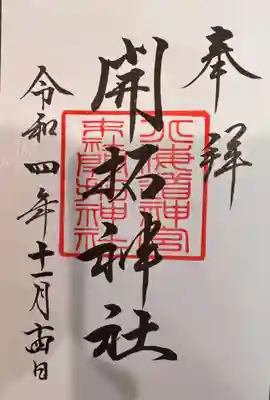 奉拝
開拓神社
北海道神宮
末開拓神社
令和四年十一月十四日